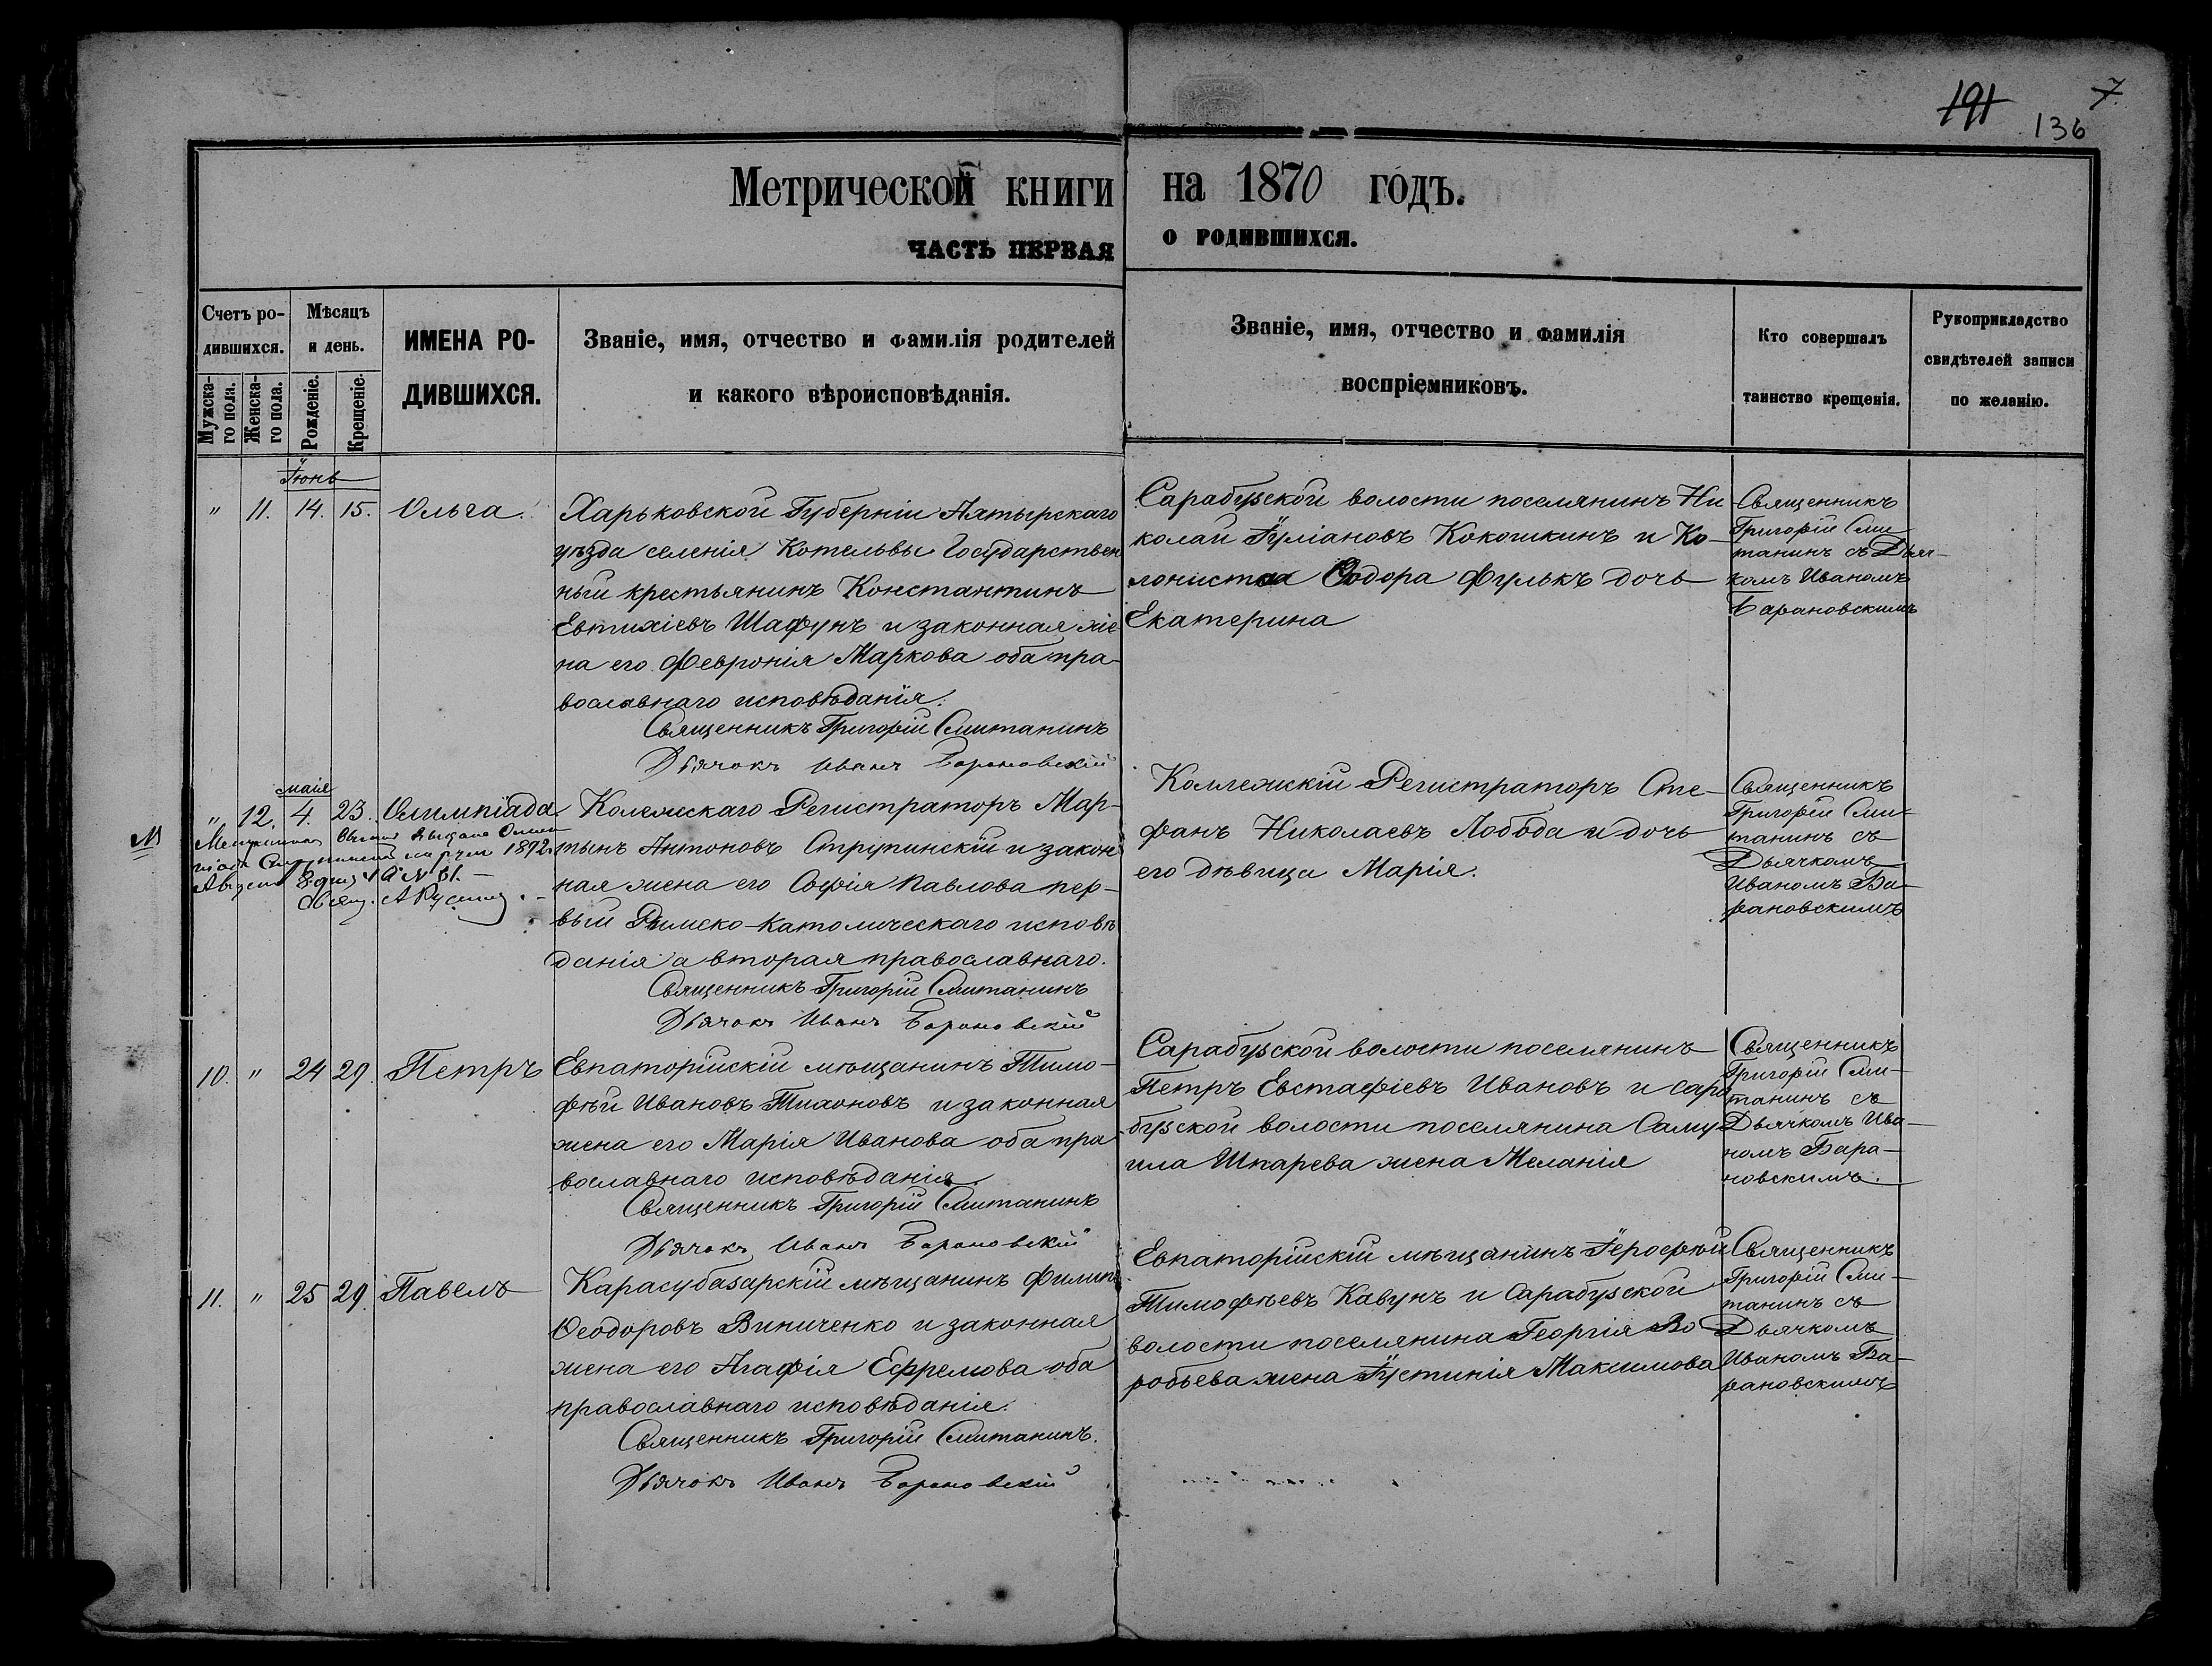 191
7
136
Метрической книги на 1870 годъ.
ЧАСТЬ ПЕРВАЯ о родившихся.
Счетъ ро-
дившихся.
Мужска-
го пола.
Женска-
го пола.
Мѣсяцъ
и день.
Рожденіе.
Крещеніе.
ИМЕНА РО-
ДИВШИХСЯ.
Званіе, имя, отчество и фамилія родителей
и какого вѣроисповѣданія.
Званіе, имя, отчество и фамилія
воспріемниковъ.
Кто совершалъ
таинство крещенія.
Рукоприкладство
свидѣтелей записи
по желанію.
Іюнь
" 11. 14. 15. Ольга.
Харьковской Губерніи Ахтырскаго
уѣзда селенія Котельвы Государствен
ный крестьянинъ Константинъ
Евтихіевъ Шафунъ и законная же
на его Февронія Маркова оба пра-
вославнаго исповѣданія.
Священникъ Григорій Смитанинъ
Дьячокъ Иванъ Барановскій
Сарабузской волости поселянинъ Ни
колай Іуліановъ Кокошкинъ и Ко-
лониста Ѳодора Фулькъ дочь
Екатерина
Священникъ
Григорій Сми-
танинъ съ Дьяч-
комъ Иваномъ
Барановскимъ
маія
" 12. 4. 23. Олимпіада.
М
1872
Августа
Свящ. А Русинъ
Колежскаго Регистраторъ Мар-
тынъ Антоновъ Струпинскій и закон
ная жена его Софія Павлова пер-
вый Римско-Католическаго исповѣ
данія а вторая православнаго.
Священникъ Григорій Смитанинъ
Дьячокъ Иванъ Барановскій
Коллежскій Регистраторъ Сте-
фанъ Николаевъ Лобода и дочь
его дѣвица Марія.
Священникъ
Григорій Сми-
танинъ съ
Дьячкомъ
Иваномъ Ба-
рановскимъ
10. " 24 29. Петръ
Евпаторійскій мѣщанинъ Тимо-
фѣй Ивановъ Тихоновъ и законная
жена его Марія Иванова оба пра
вославнаго исповѣданія.
Священникъ Григорій Смитанинъ
Дьячокъ Иванъ Барановскій
Сарабузской волости поселянинъ
Петръ Евстафіевъ Ивановъ и Сара
бузской волости поселянина Саму
ила Шкарева жена Меланія
Священникъ
Григорій Сми-
танинъ съ
Дьячкомъ Ива-
номъ Бара-
новскимъ.
11. " 25 29. Павелъ
Карасубазарскій мѣщанинъ Филипъ
Ѳеодоровъ Виниченко и законная
жена его Агафія Ефремова оба
православнаго исповѣданія.
Священникъ Григорій Смитанинъ.
Дьячокъ Иванъ Барановскій
Евпаторійскій мѣщанинъ Іерофѣй
Тимофѣевъ Кавунъ и Сарабузской
волости поселянина Георгія Во
робьева жена Іустинія Максимова
Священникъ
Григорій Сми-
танинъ съ
Дьячкомъ
Иваномъ Ба-
рановскимъ